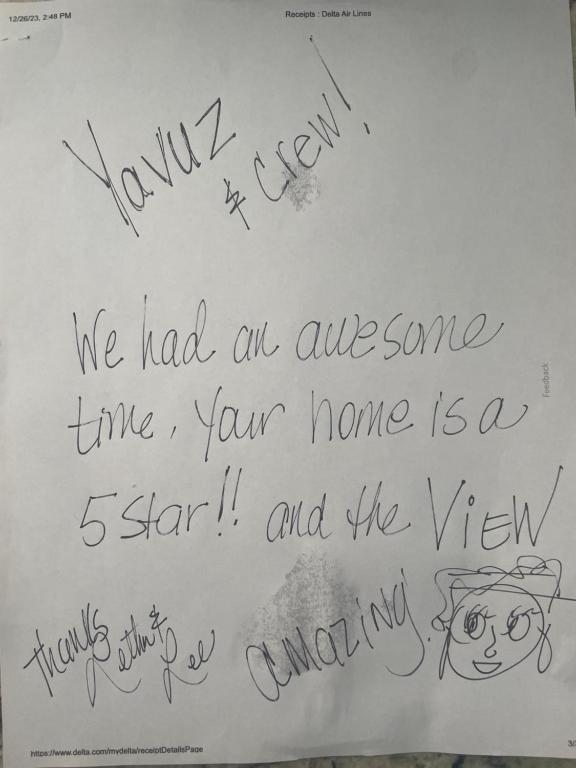 12/26/23, 2:48 PM
Receipts : Delta Air Lines
Yavuz
& Crew!
We had an awesome
time, Your home is a
5 Star!! and the VIEW
amazing.
thanks
&
Lee
Feedback
https://www.delta.com/mydelta/receiptDetailsPage